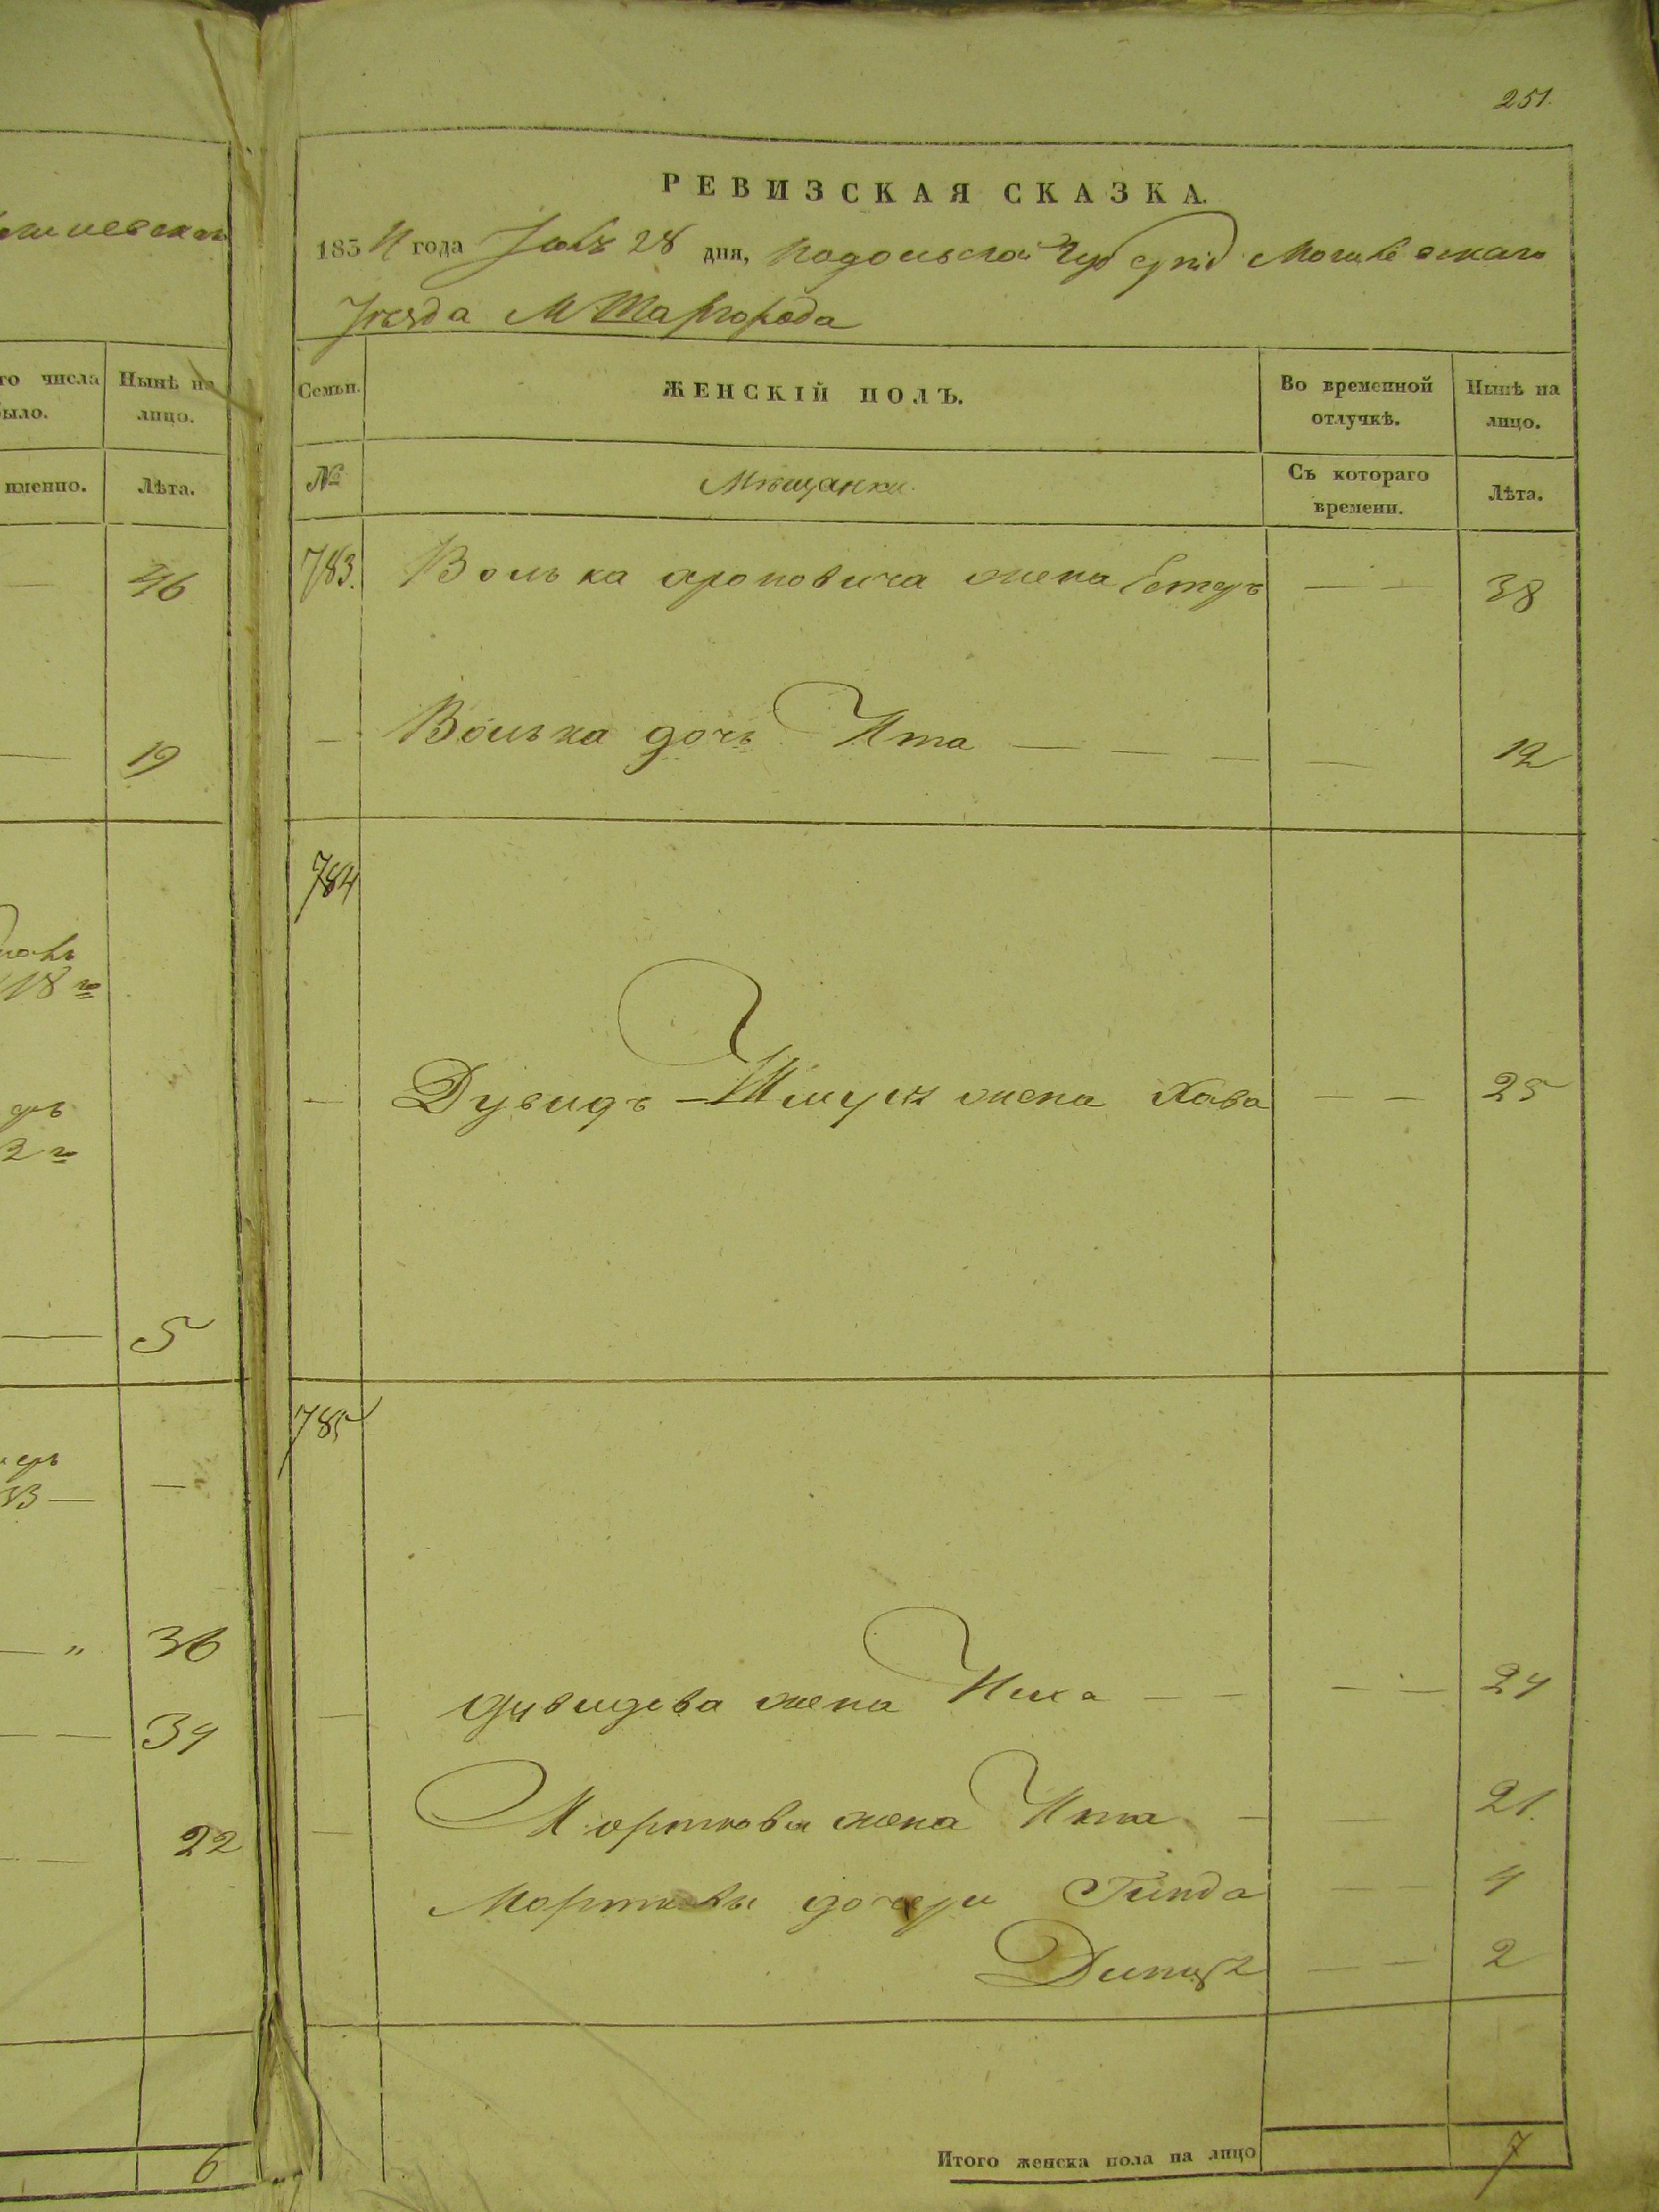 251.
РЕВИЗСКАЯ СКАЗКА.
1834 года Июля 28 дня, Подольской Губерніи Могилевскаго
Уезда М Шаргорода
го числа
было.
Нынѣ на
лицо.
именно.
Лѣта.
46
19
18 го
2 го
5
36
34
22
6
Семьи.
ЖЕНСКІЙ ПОЛЪ.
Во временной
отлучкѣ.
Нынѣ на
лицо.
№
Мѣщанки.
Съ котораго
времени.
Лѣта.
783. Волька ароновича жена Естеръ — — 38
— Волька дочь Ита — — — — 12
784
— Дувидъ-Шмуля жена Хава — — 25
785
— дувидова жена — — — — 24
— Мортковa жена Ита — — 21.
Мортковы дочери Гинда — — 4
2
Итого женска пола на лицо 7